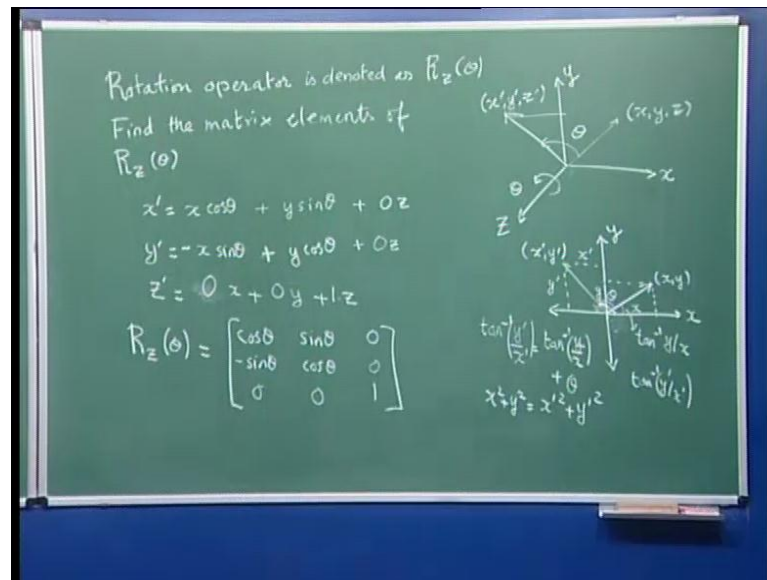 Rotation operator is denoted as R_z(θ)
Find the matrix elements of
R_z(θ)
x' = x cosθ + y sinθ + 0z
y' = -x sinθ + y cosθ + 0z
z' = 0x + 0y + 1.z
R_z(θ) = [cosθ sinθ 0
-sinθ cosθ 0
0 0 1]
y
(x',y',z')
(x,y,z)
θ
x
θ
Z
y
(x',y')
x'
(x,y)
y'
θ
x
x
tan⁻¹(y'/x') = tan⁻¹(y/x)
+ θ
tan⁻¹ y/x
tan⁻¹(y'/x')
x²+y² = x'²+y'²